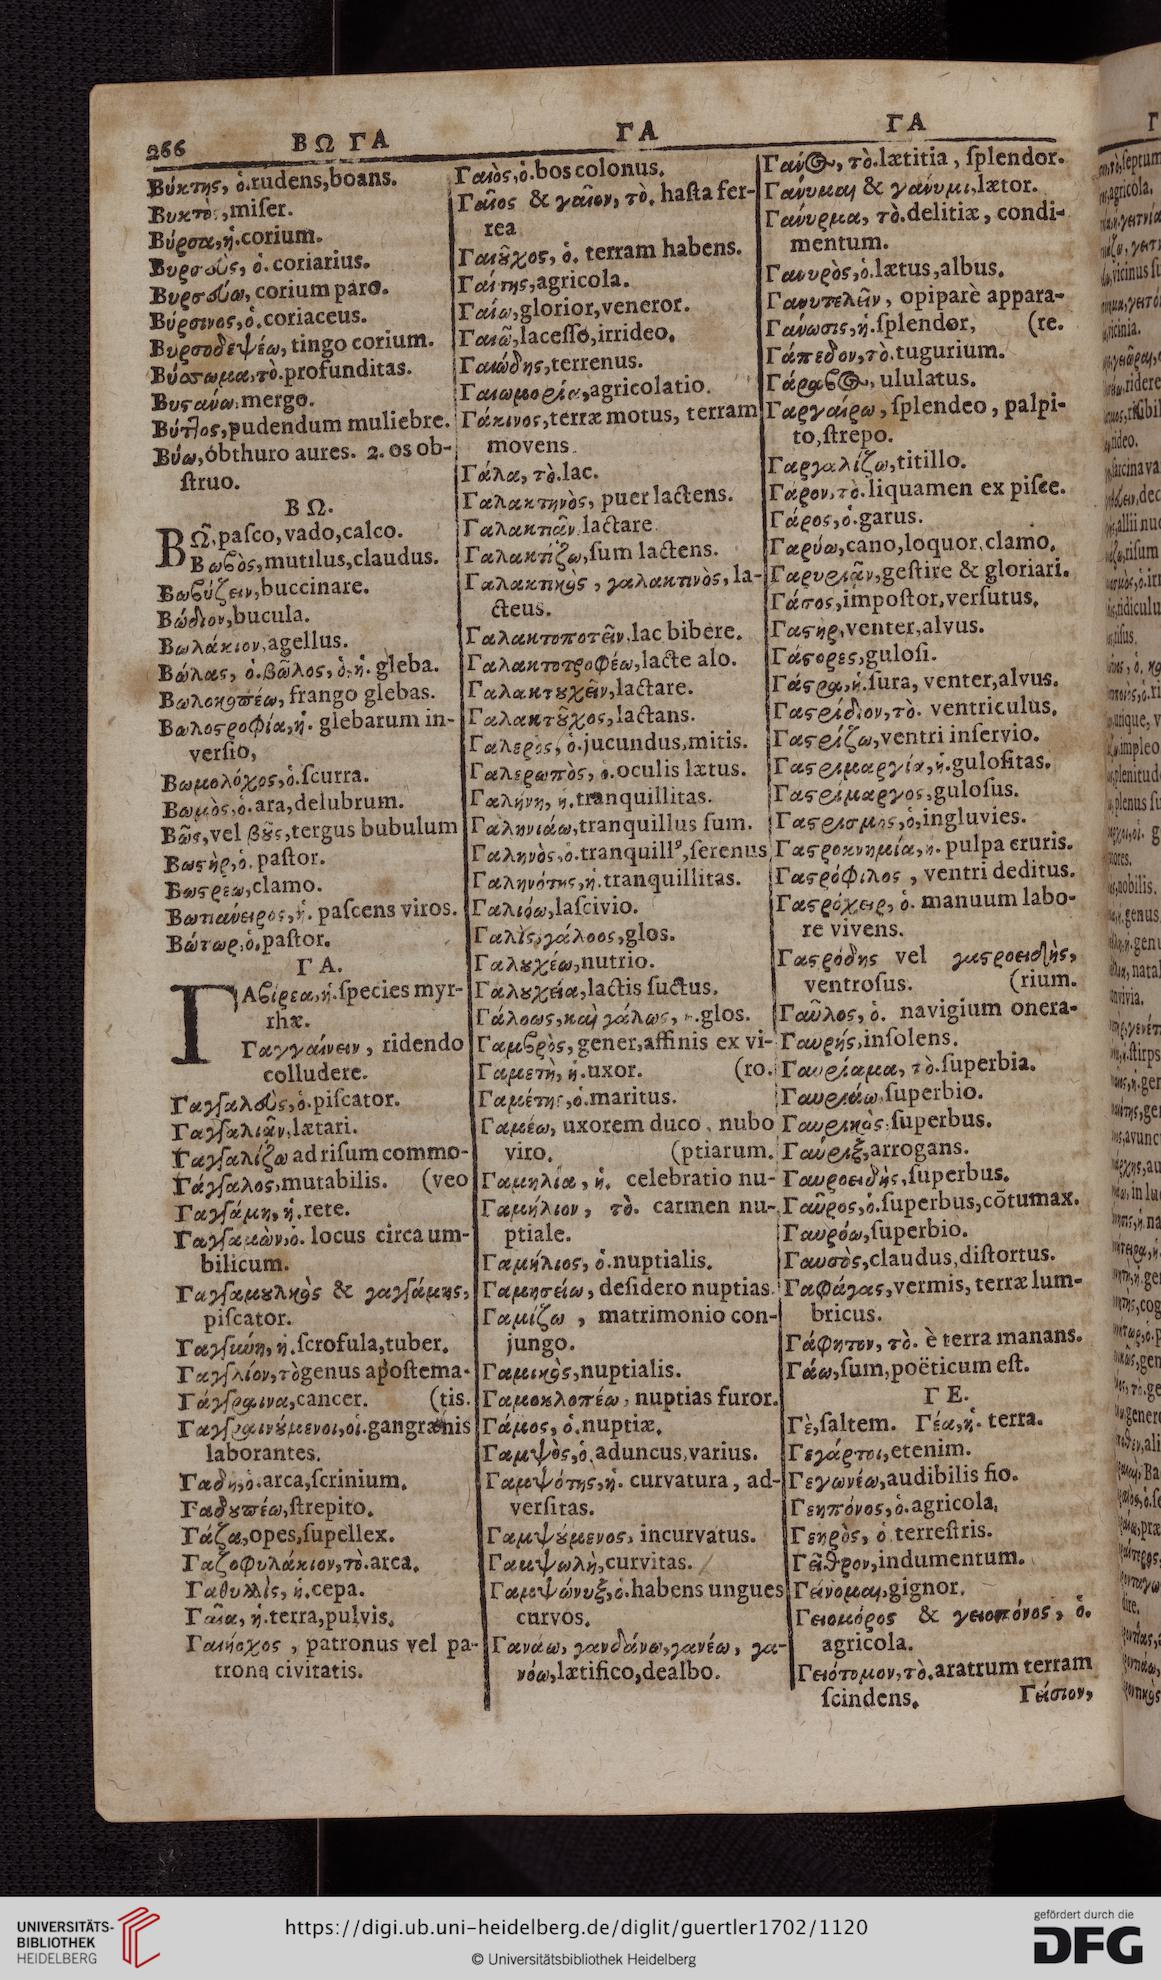 266 ΒΩ ΓΑ
Βύκτης, ὁ.rudens,boans.
Βυκτὸς,miſer.
Βύρσα,ἡ.corium.
Βυρσεὺς, ὁ.coriarius.
Βυρσεύω, corium paro.
Βύρσινος,ὁ.coriaceus.
Βυρσοδεψέω, tingo corium.
Βύσσωμα,τὸ.profunditas.
mergo.
Βύτ]ος,pudendum muliebre.
Βύω,óbthuro aures. 2. os ob-
ſtruo.
ΒΩ.
ΒΩ͂,paſco,vado,calco.
Βωβὸς,mutilus,claudus.
Βωβύζειν,buccinare.
Βώδιον,bucula.
Βωλάκιον,agellus.
Βώλας, ὁ.βῶλος,ὁ,ἡ. gleba.
Βωλοκοπέω, frango glebas.
Βωλοστροφία,ἡ. glebarum in-
verſio,
Βωμολόχος,ὁ.ſcurra.
Βωμὸς,ὁ.ara,delubrum.
Βῶς,vel βοῦς,tergus bubulum
Βωστὴρ,ὁ. paſtor.
Βωστρέω,clamo.
Βωτιάνειρος,ἡ. paſcens viros.
Βώτωρ,ὁ.paſtor.
ΓΑ.
ΓΑβίρεα,ἡ.ſpecies myr-
rhæ.
Γαγγαίνειν, ridendo
colludere.
Γαγγαλεὺς,ὁ.piſcator.
Γαγγαλιᾶν,lætari.
Γαγγαλίζω ad riſum commo-
Γάγγαλος,mutabilis. (veo
Γαγγάμη, ἡ.rete.
Γαγγαμὼν,ὁ. locus circa um-
bilicum.
Γαγγαμουλκὸς & γαγγάμης,
piſcator.
ἡ.ſcrofula,tuber.
Γαγγλίον,τὸ genus apoſtema-
Γάγγραινα,cancer. (tis.
Γαγγραινούμενοι,οἱ.gangrænis
laborantes.
Γαδη,ὁ.arca,ſcrinium.
Γαδουπέω,ſtrepito.
Γάζα,opes,ſupellex.
Γαζοφυλάκιον,τὸ.arca.
Γαθυλλὶς, ἡ.cepa.
Γαῖα, ἡ.terra,pulvis.
Γαιήοχος, patronus vel pa-
trona civitatis.
ΓΑ
Γαιὸς,ὁ.bos colonus.
Γαῖος & γαῖον, τὸ. haſta fer-
rea
Γαιοῦχος, ὁ. terram habens.
Γαΐτης,agricola.
Γαίω,glorior,veneror.
Γαιῶ,laceſſo,irrideo.
Γαιώδης,terrenus.
Γαιωμορία,agricolatio.
Γάκινος,terræ motus, terram
movens.
Γάλα, τὸ.lac.
Γαλακτηνὸς, puer lactens.
Γαλακτιᾶν,lactare.
Γαλακτίζω,ſum lactens.
Γαλακτικὸς, γαλακτινὸς, la-
cteus.
Γαλακτοποτεῖν,lac bibere.
Γαλακτοτροφέω,lacte alo.
Γαλακτουχεῖν,lactare.
Γαλακτοῦχος,lactans.
Γαλερὸς, ὁ.jucundus,mitis.
Γαλερωπὸς, ὁ.oculis lætus.
Γαλήνη, ἡ.tranquillitas.
Γαληνιάω,tranquillus ſum.
Γαληνὸς,ὁ.tranquillꝰ,ſerenus
Γαληνότης,ἡ.tranquillitas.
Γαλιόω,laſcivio.
Γαλὶς,γάλοος,glos.
Γαλουχέω,nutrio.
Γαλουχεία,lactis ſuctus.
Γάλοως,καὶ γάλως, ἡ.glos.
Γαμβρὸς, gener,affinis ex vi-
Γαμετὴ, ἡ.uxor. (ro.
Γαμέτης,ὁ.maritus.
Γαμέω, uxorem duco, nubo
viro. (ptiarum.
Γαμηλία, ἡ. celebratio nu-
Γαμήλιον, τὸ. carmen nu-
ptiale.
Γαμήλιος, ὁ.nuptialis.
Γαμησείω, deſidero nuptias.
Γαμίζω, matrimonio con-
jungo.
Γαμικὸς,nuptialis.
Γαμοκλοπέω, nuptias furor.
Γάμος, ὁ.nuptiæ.
Γαμψὸς,ὁ.aduncus,varius.
Γαμψότης,ἡ. curvatura, ad-
verſitas.
Γαμψούμενος, incurvatus.
Γαμψωλὴ,curvitas.
Γαμψώνυξ,ὁ.habens ungues
curvos.
Γανάω, γανδάνω,γανέω, γα-
νόω,lætifico,dealbo.
ΓΑ
Γάνος, τὸ.lætitia, ſplendor.
Γάνυμαι & γάνυμι,lætor.
τὸ.delitiæ, condi-
mentum.
Γανυρὸς,ὁ.lætus,albus.
Γανυτελεῖν, opiparè appara-
Γάνωσις,ἡ.ſplendor, (re.
Γάπεδον,τὸ.tugurium.
ululatus.
Γαργαίρω, ſplendeo, palpi-
to,ſtrepo.
Γαργαλίζω,titillo.
Γάρον,τὸ.liquamen ex piſce.
Γάρος,ὁ.garus.
Γαρύω,cano,loquor,clamo.
Γαρυριᾶν,geſtire & gloriari.
Γάσος,impoſtor,verſutus.
Γαστὴρ,venter,alvus.
Γάστορες,guloſi.
Γάστρα,ἡ.ſura, venter,alvus.
Γαστρίδιον,τὸ. ventriculus.
Γαστρίζω,ventri inſervio.
Γαστριμαργία,ἡ.guloſitas.
Γαστρίμαργος,guloſus.
Γαστρισμὸς,ὁ,ingluvies.
Γαστροκνημία,ἡ. pulpa cruris.
Γαστρόφιλος, ventri deditus.
Γαστρόχειρ, ὁ. manuum labo-
re vivens.
Γαστρώδης vel γαστροειδὴς,
ventroſus. (rium.
Γαῦλος, ὁ. navigium onera-
Γαυρής,inſolens.
Γαυρίαμα, τὸ.ſuperbia.
Γαυριάω,ſuperbio.
Γαυρικὸς,ſuperbus.
Γαύριξ,arrogans.
Γαυροειδὴς,ſuperbus.
Γαῦρος,ὁ.ſuperbus,cõtumax.
Γαυρόω,ſuperbio.
Γαυσὸς,claudus,diſtortus.
Γαφάγας,vermis, terræ lum-
bricus.
Γάφητον, τὸ. è terra manans.
Γάω,ſum,poëticum eſt.
ΓΕ.
Γὲ,ſaltem. Γέα,ἡ. terra.
Γεγάρτοι,etenim.
Γεγωνέω,audibilis fio.
Γεηπόνος,ὁ.agricola.
Γεηρὸς, ὁ terreſtris.
Γεῖθρον,indumentum.
Γείνομαι,gignor.
Γειομόρος & γειοπόνος, ὁ.
agricola.
Γειότομον,τὸ.aratrum terram
ſcindens. Γείσιον,
UNIVERSITÄTS-
BIBLIOTHEK
HEIDELBERG
https://digi.ub.uni-heidelberg.de/diglit/guertler1702/1120
© Universitätsbibliothek Heidelberg
gefördert durch die
DFG